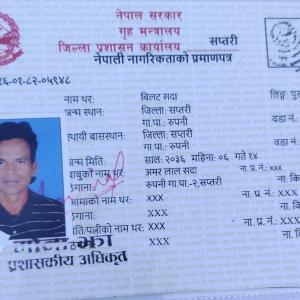 नेपाल सरकार
गृह मन्त्रालय
जिल्ला प्रशासन कार्यालय सप्तरी
नेपाली नागरिकताको प्रमाणपत्र
१६-०१-८२-०५९४८
नाम थर: बिलट सदा लिङ्ग: पु
जन्म स्थान: जिल्ला: सप्तरी
गा.पा.: रुपनी वडा नं.
स्थायी बासस्थान: जिल्ला: सप्तरी
गा.पा.: रुपनी वडा नं
जन्म मिति: साल: २०३६ महिना: ०६ गते १४
बाबुको नाम थर: अमर लाल सदा ना.प्र.नं.:
ठेगाना: रुपनी गा.पा.-२,सप्तरी ना. कि
आमाको नाम थर: xxx ना. प्र. नं.:
ठेगाना: xxx ना. कि
पति/पत्नीको नाम थर: xxx ना. प्र. नं.:
xxx ना. कि
प्रशासकीय अधिकृत